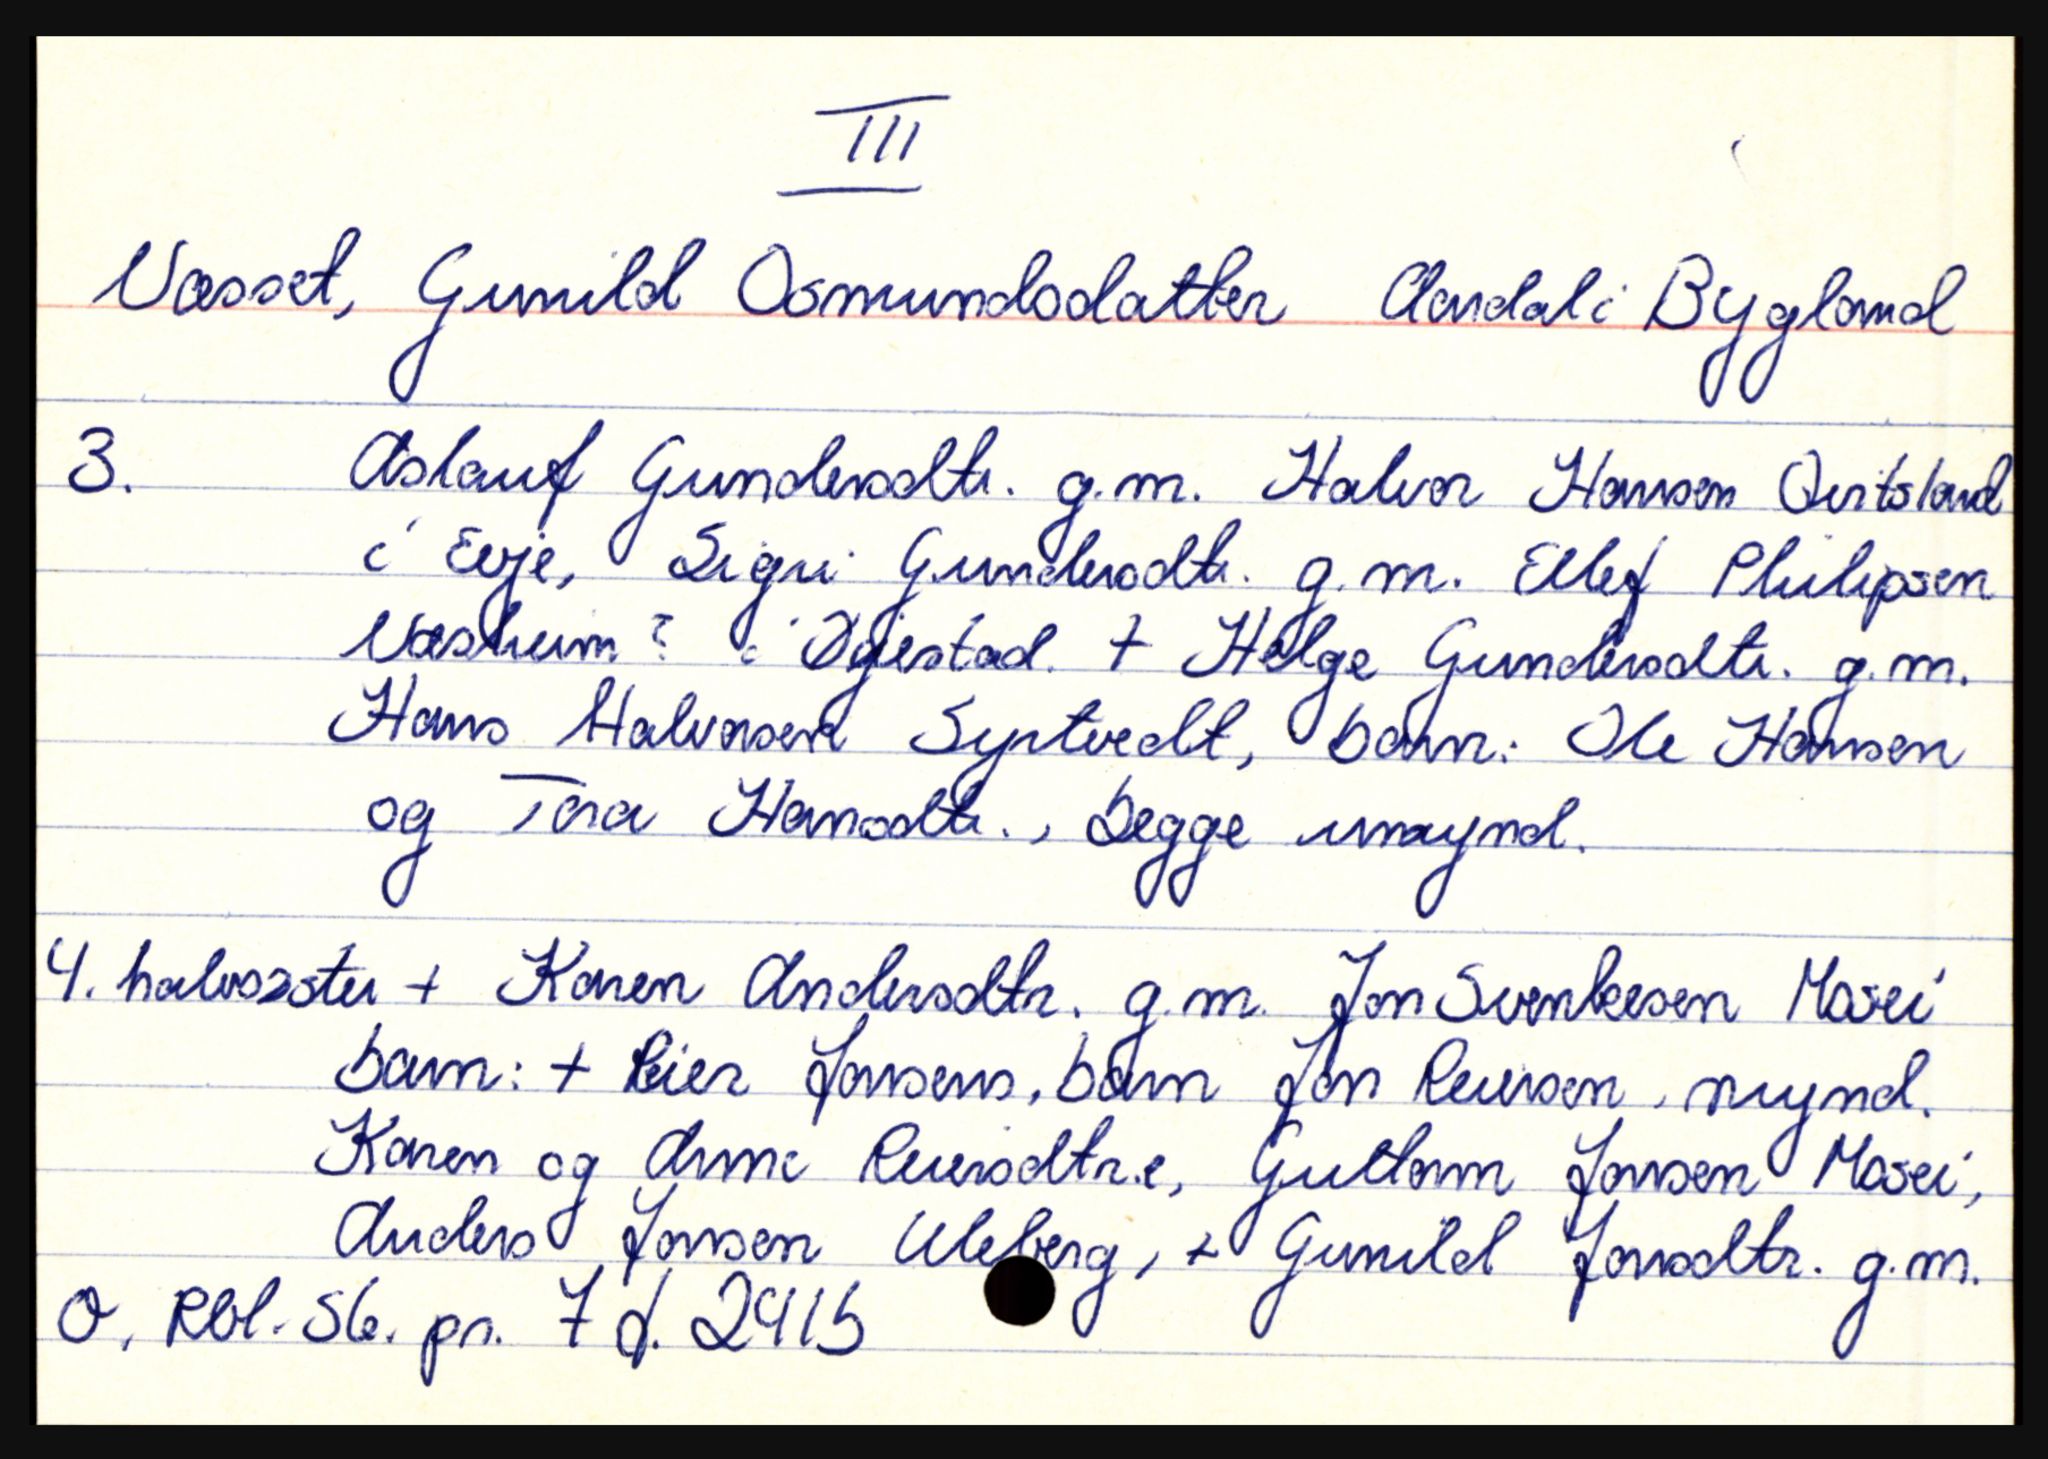 III
Væsset, Gunild Osmundsdatter Aardal i Bygland
3. Aslauf Gundersdtr. g.m. Halvor Hansen
i Evje, Sigri Gundersdtr. g.m. Ellef Philipsen
Væsheim? i Øjestad. + Helge Gundersdtr. g.m.
Hans Halvorsen Syrtvedt, barn: Ole Hansen
og Tora Hansdtr., begge umynd.
4. halvsøster + Karen Andersdtr. g.m. Jon Svenkesen Mosei
barn: + Reier Jonsens, barn Jon Reiersen, mynd.
Karen og Anne Reiersdtr.e, Guttorm Jonsen Mosei,
Anders Jonsen Uleberg, + Gunild Jonsdtr. g.m.
O. Rbl. Sk. pr. 7 f. 241b